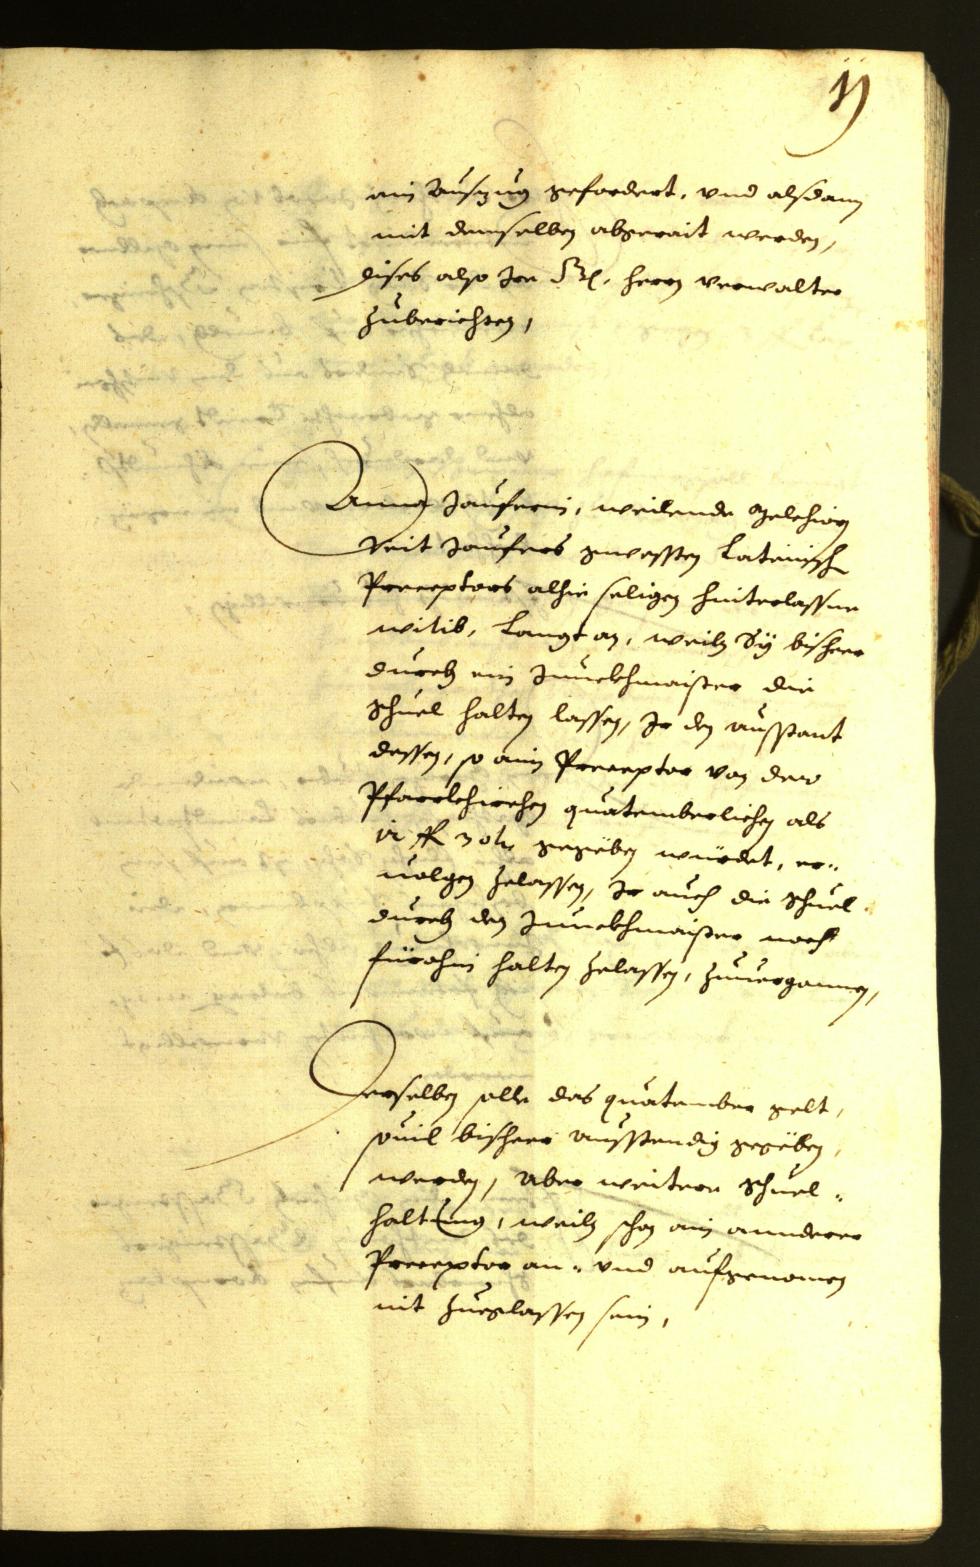 ain Auszug gefordert, vnd alsdann
mit demselben abgerait werden,
dises also Irr herrn verwalter
zuberichten,
Anna Jauferin, weilende Melchior
Veit Jaufers gewessten Lateinisch
Preceptors alhie seligen hinterlassne
witib, langt an, weiln Sÿ bisheer
durch ein Junckhmaister die
schuel halten lassen, Ir den ausstant
dessen, so ain Preceptor von der
Pfarrkhirchen quatemberlichen als
gegeben würdet, er¬
uolgen zelassen, Ir auch die schuel
durch den Junckhmaister noch
fürohin halten zelassen, zuuergonnen,
Derselben solle das quatember gelt,
souil bisheer ausstendig gegeben
werden, aber weitere schuel¬
haltung, weiln schon ain annderer
Preceptor an- vnd aufgenomen
nit zuegelassen sein,